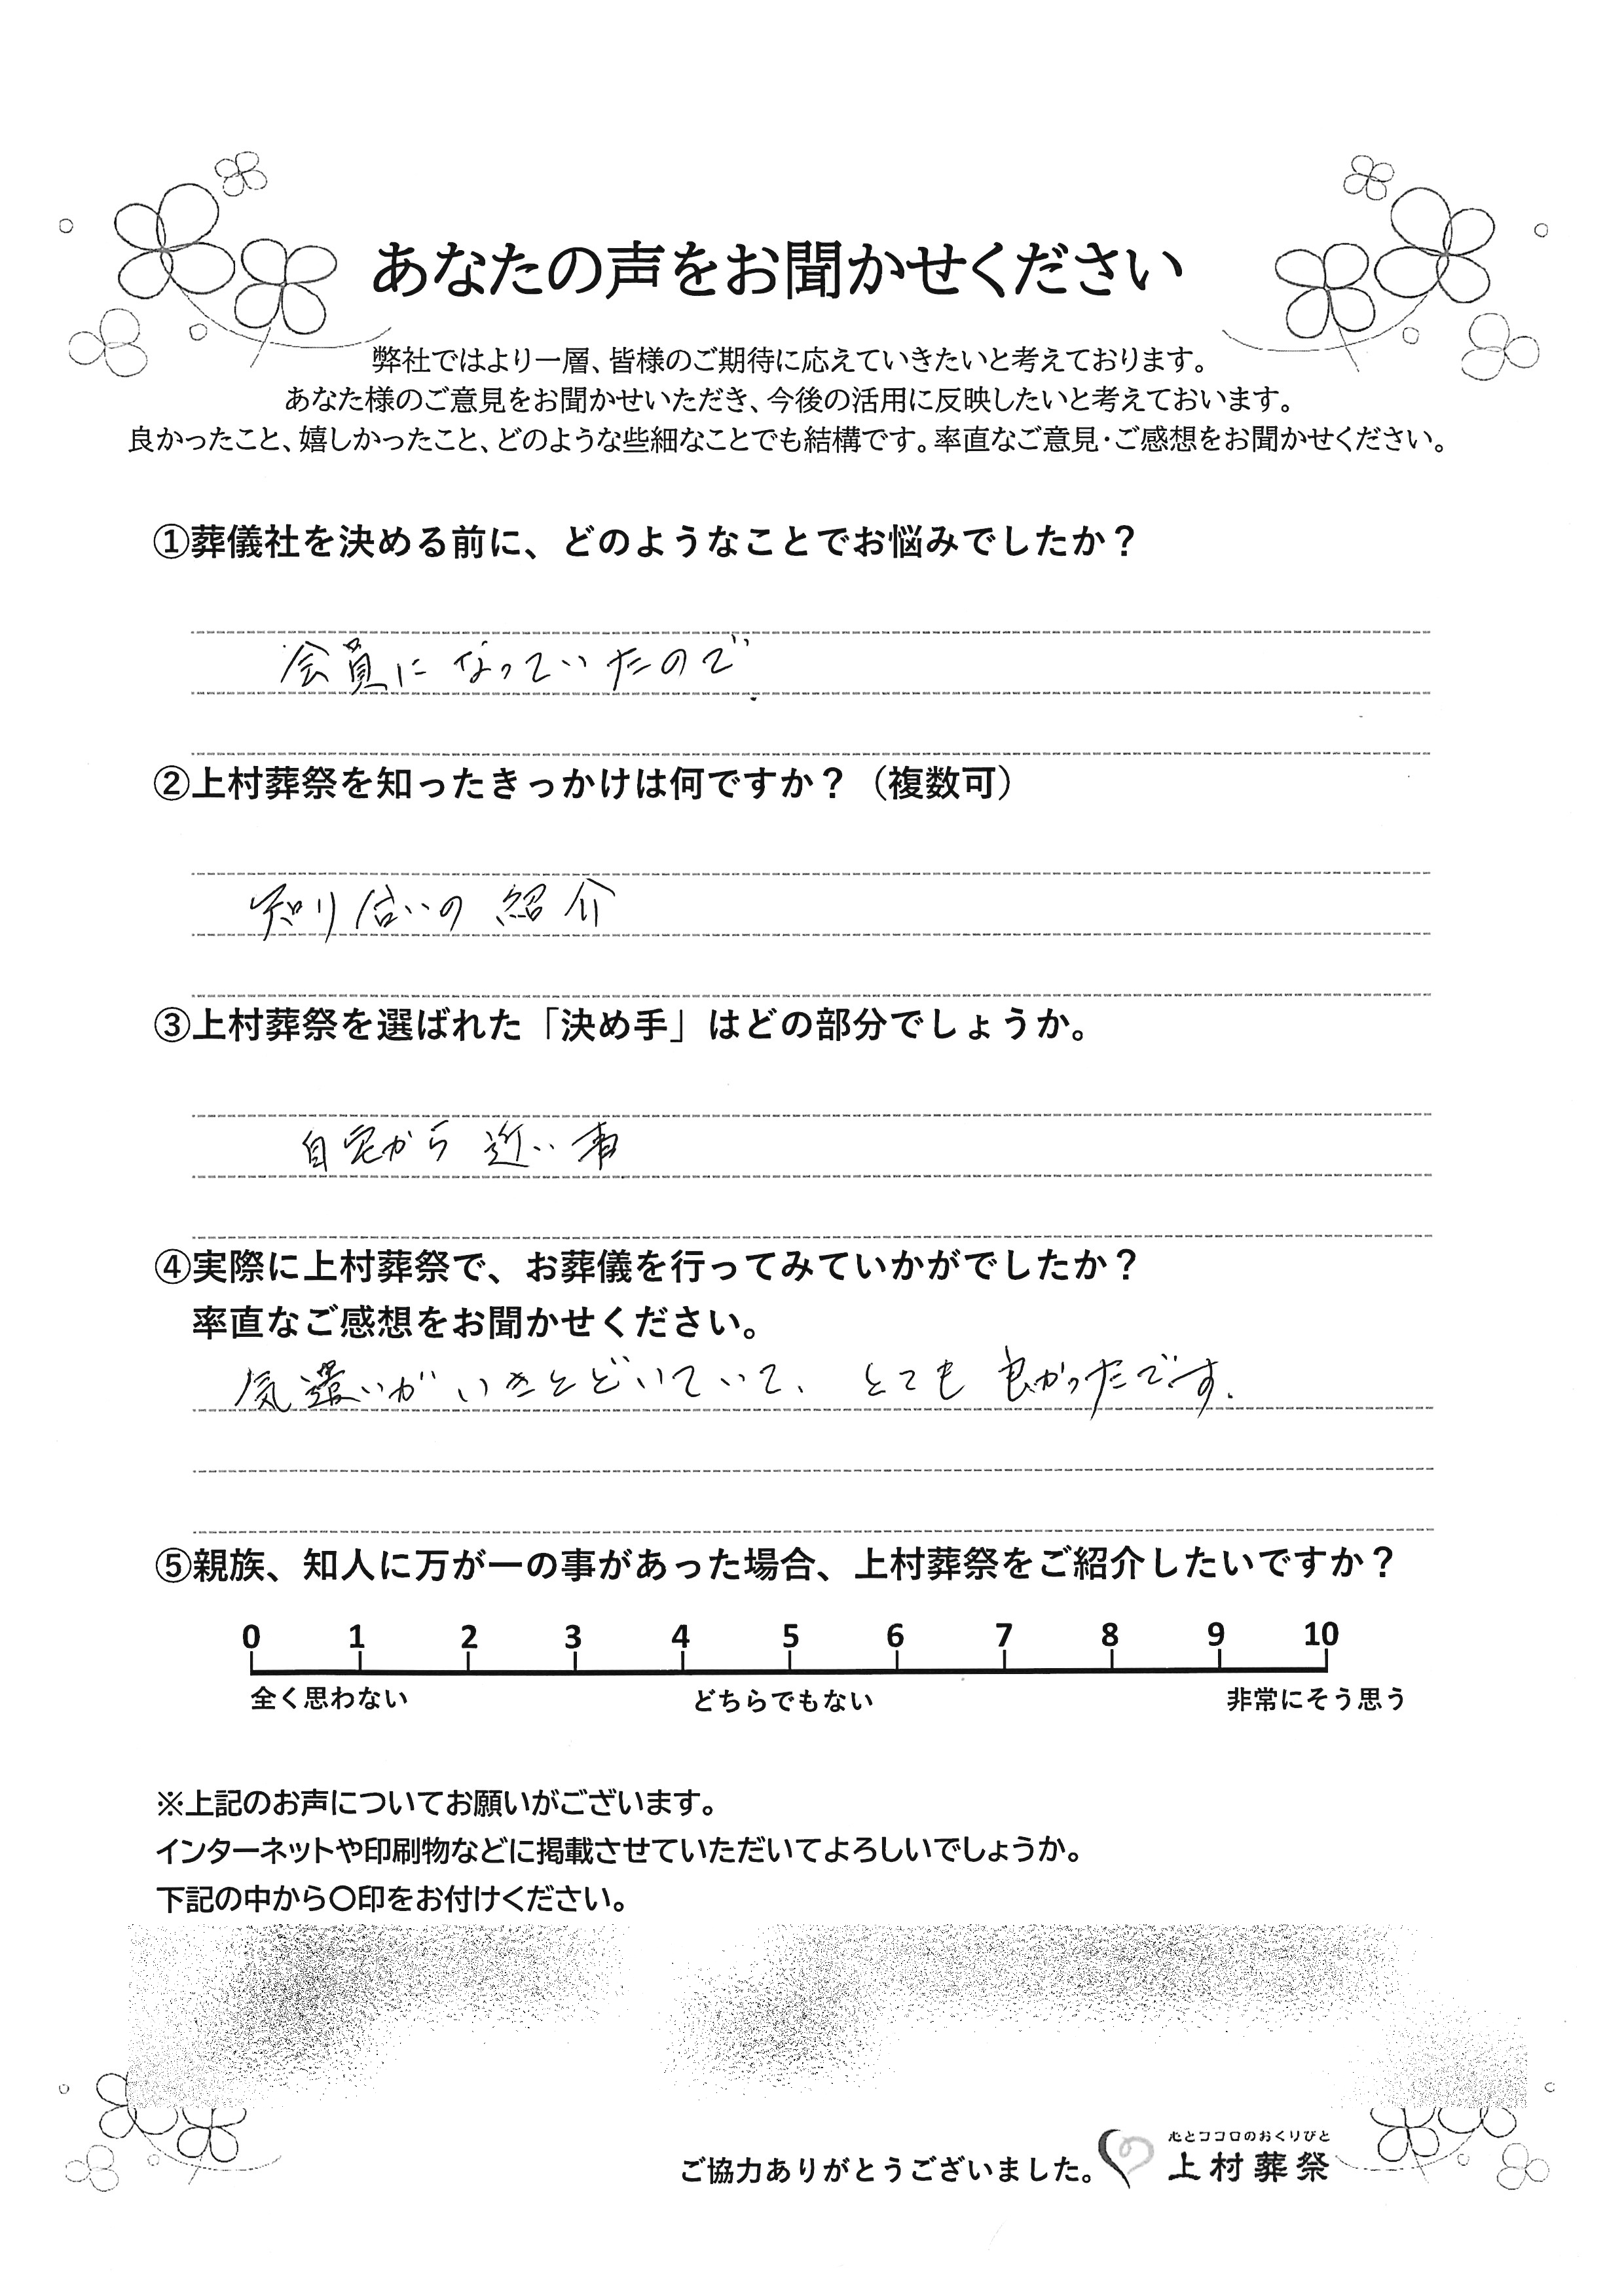 あなたの声をお聞かせください
弊社ではより一層、皆様のご期待に応えていきたいと考えております。
あなた様のご意見をお聞かせいただき、今後の活用に反映したいと考えておいます。
良かったこと、嬉しかったこと、どのような些細なことでも結構です。率直なご意見・ご感想をお聞かせください。
①葬儀社を決める前に、どのようなことでお悩みでしたか？
会員になっていたので.
②上村葬祭を知ったきっかけは何ですか？（複数可）
知り合いの紹介
③上村葬祭を選ばれた「決め手」はどの部分でしょうか。
自宅から近い事
④実際に上村葬祭で、お葬儀を行ってみていかがでしたか？
率直なご感想をお聞かせください。
気遣いがいきとどいていて、とても良かったです.
⑤親族、知人に万が一の事があった場合、上村葬祭をご紹介したいですか？
0 1 2 3 4 5 6 7 8 9 10
全く思わない どちらでもない 非常にそう思う
※上記のお声についてお願いがございます。
インターネットや印刷物などに掲載させていただいてよろしいでしょうか。
下記の中から〇印をお付けください。
心とココロのおくりびと
ご協力ありがとうございました。上村葬祭